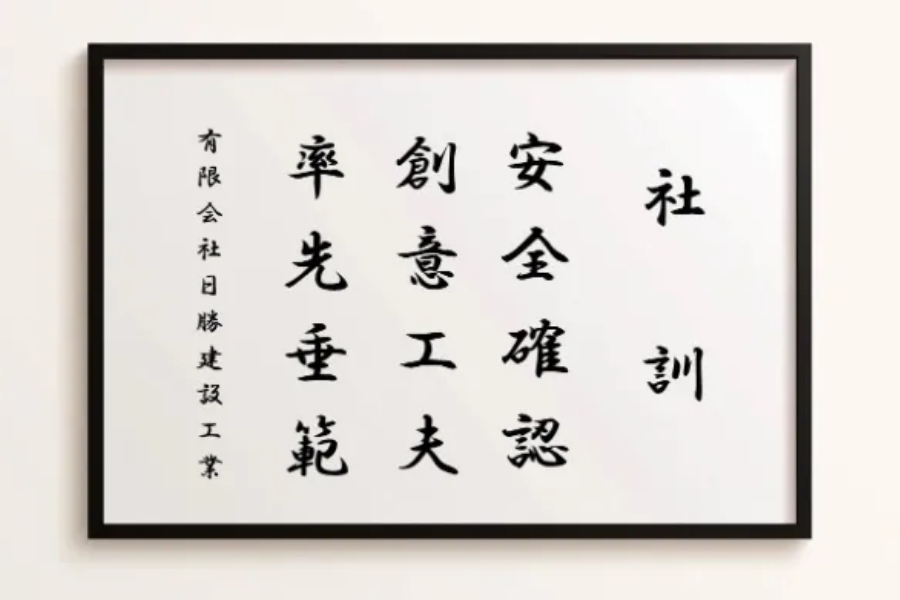 社訓
安全確認
創意工夫
率先垂範
有限会社日勝建設工業